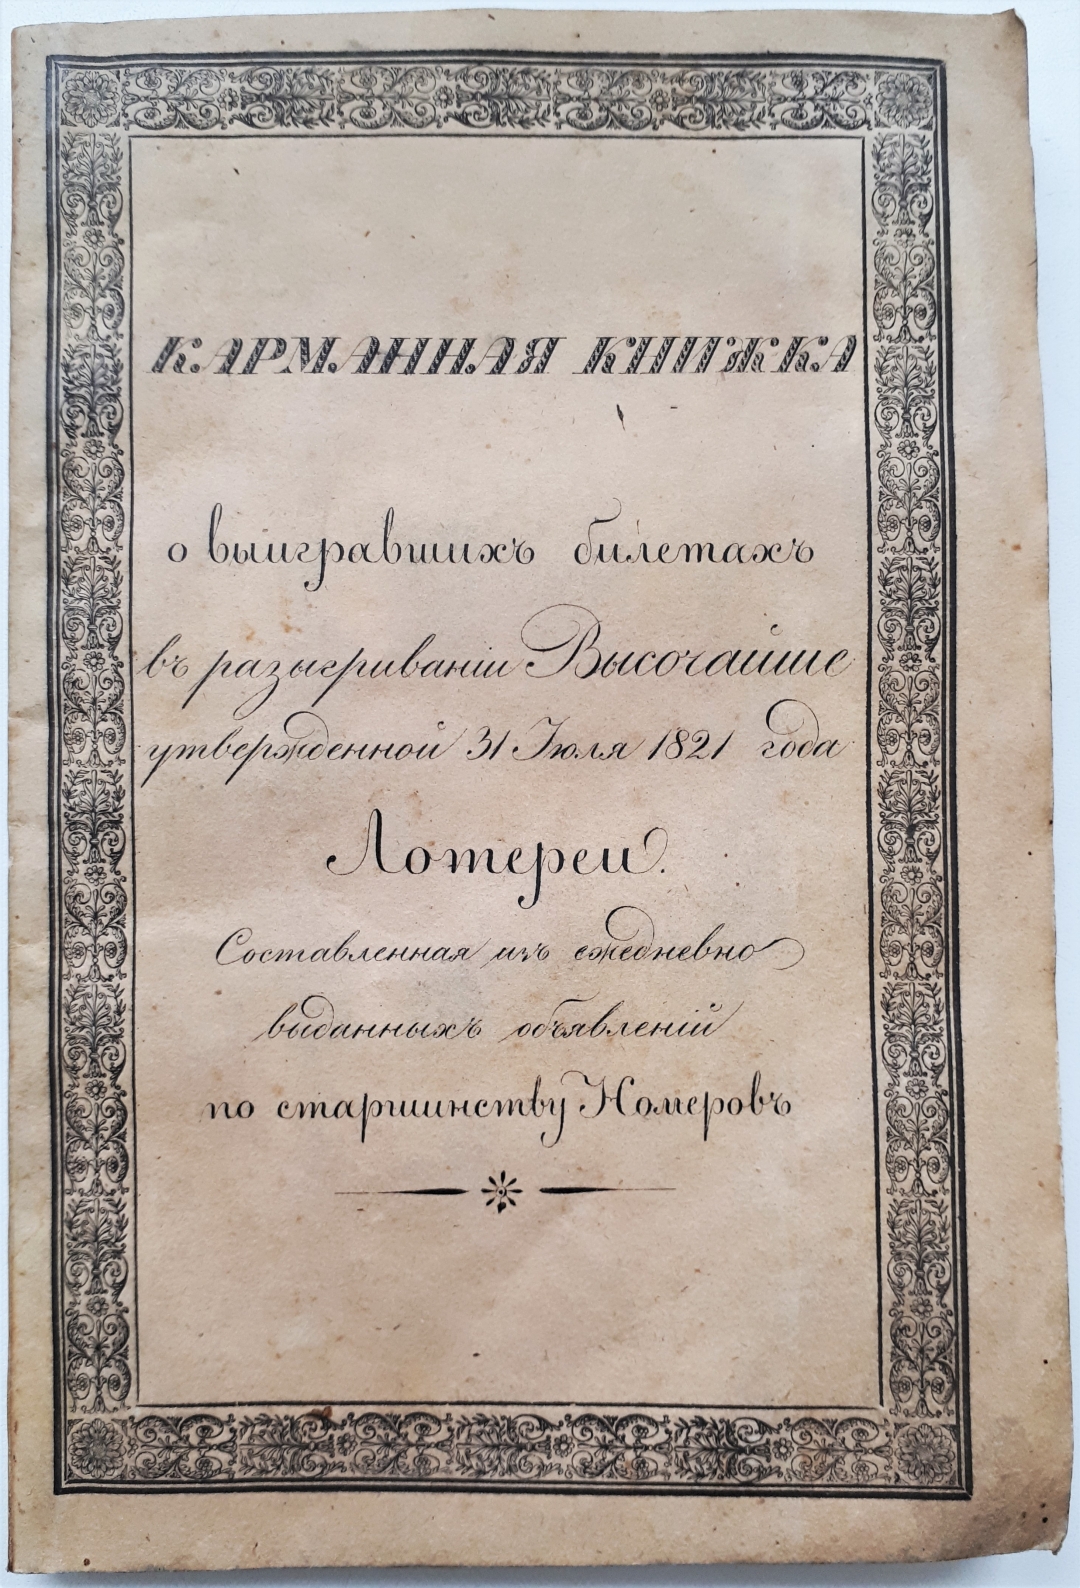 КАРМАННАЯ КНИЖКА
о выигравшихъ билетахъ
въ разыгриваніи Высочайше
утвержденной 31 Іюля 1821 года
Лотереи.
Составленная изъ ежедневно
выданныхъ объявленій
по старшинству Номеровъ